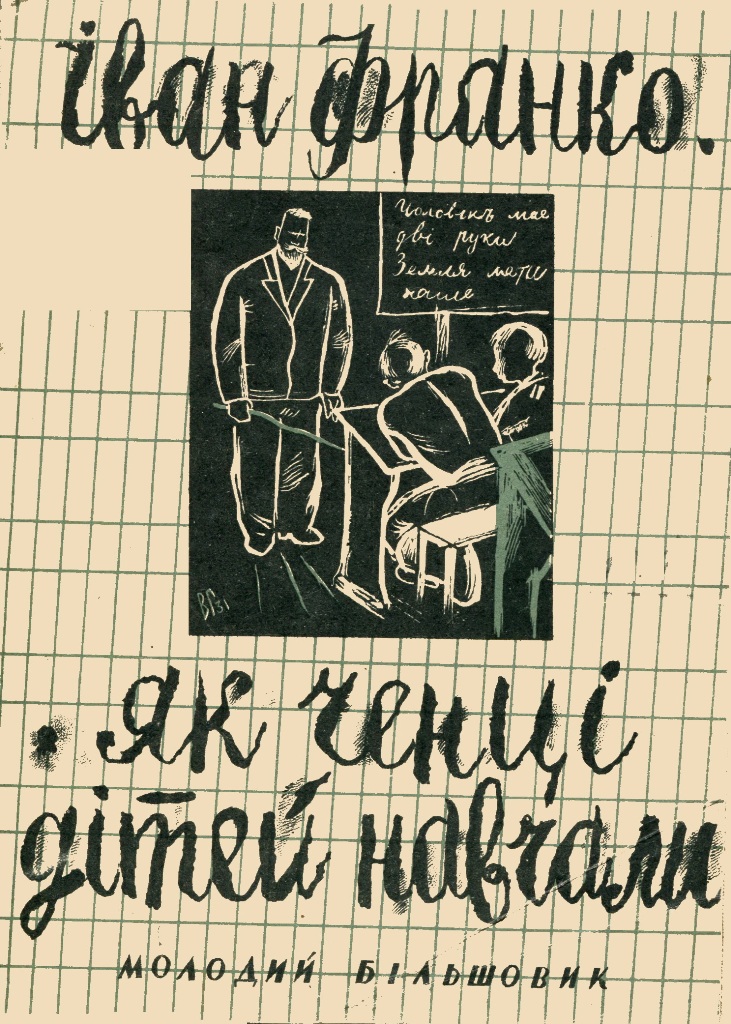 Іван Франко.
Чоловікъ має
дві руки
Земля мати
наша
ВГ 31
. Як ченці
дітей навчали
МОЛОДИЙ БІЛЬШОВИК